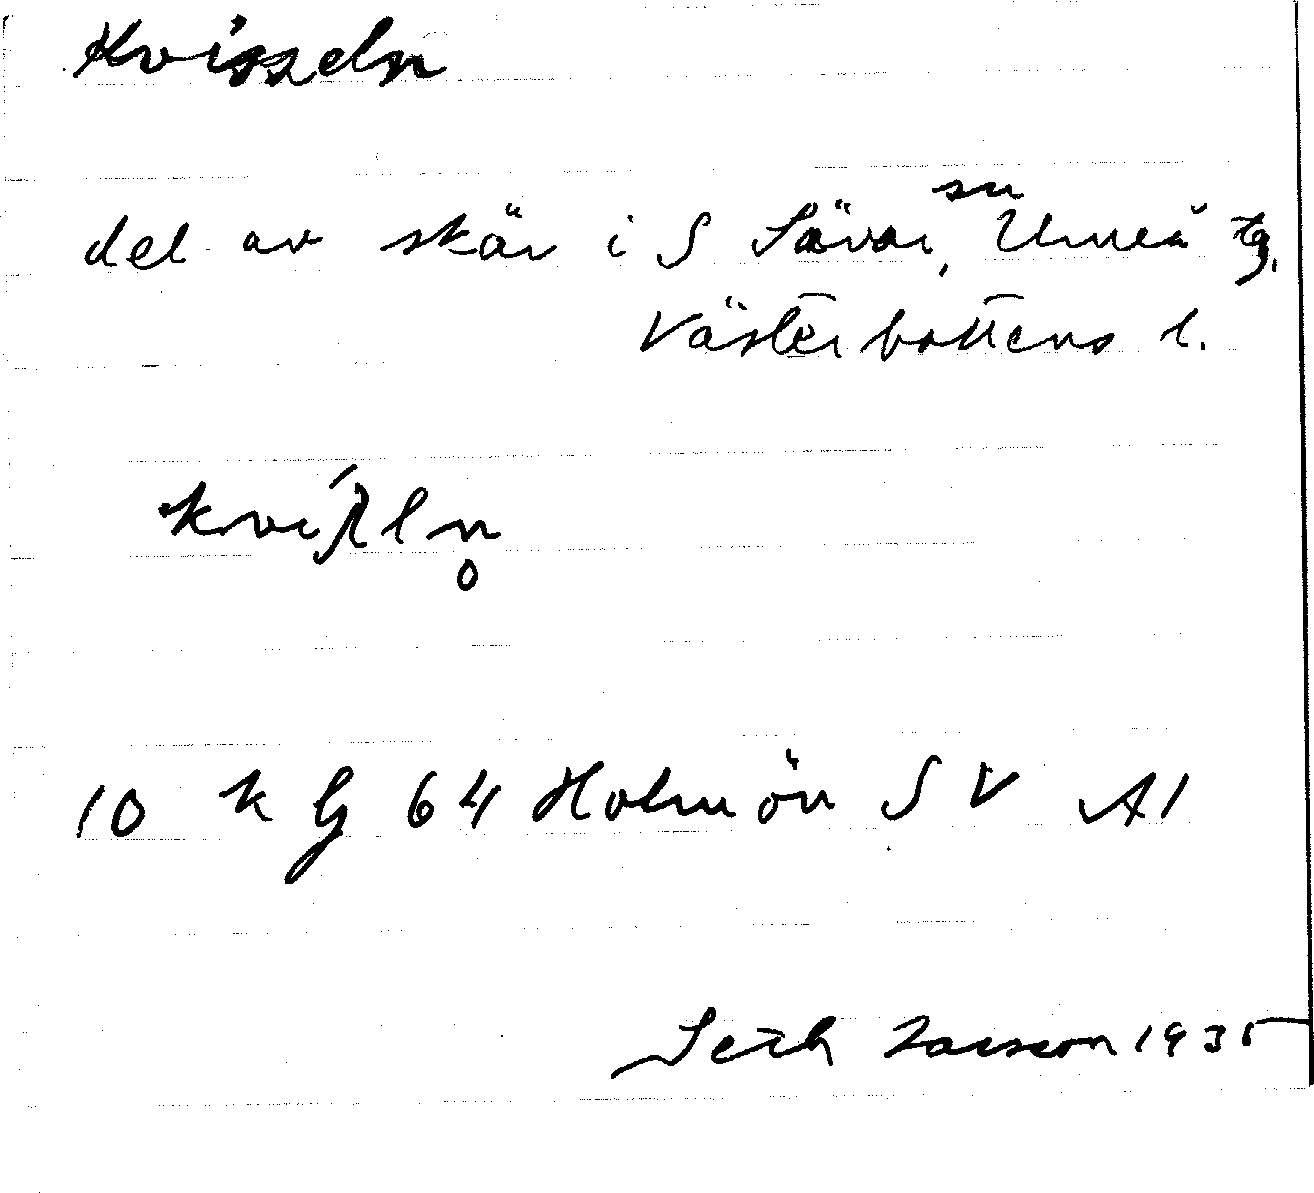 Kvisseln
del av skär i S Sävar sn, Umeå tg.
Västerbottens l.
10 k G 64 Holmön SV A1
Seth Larsson 1935